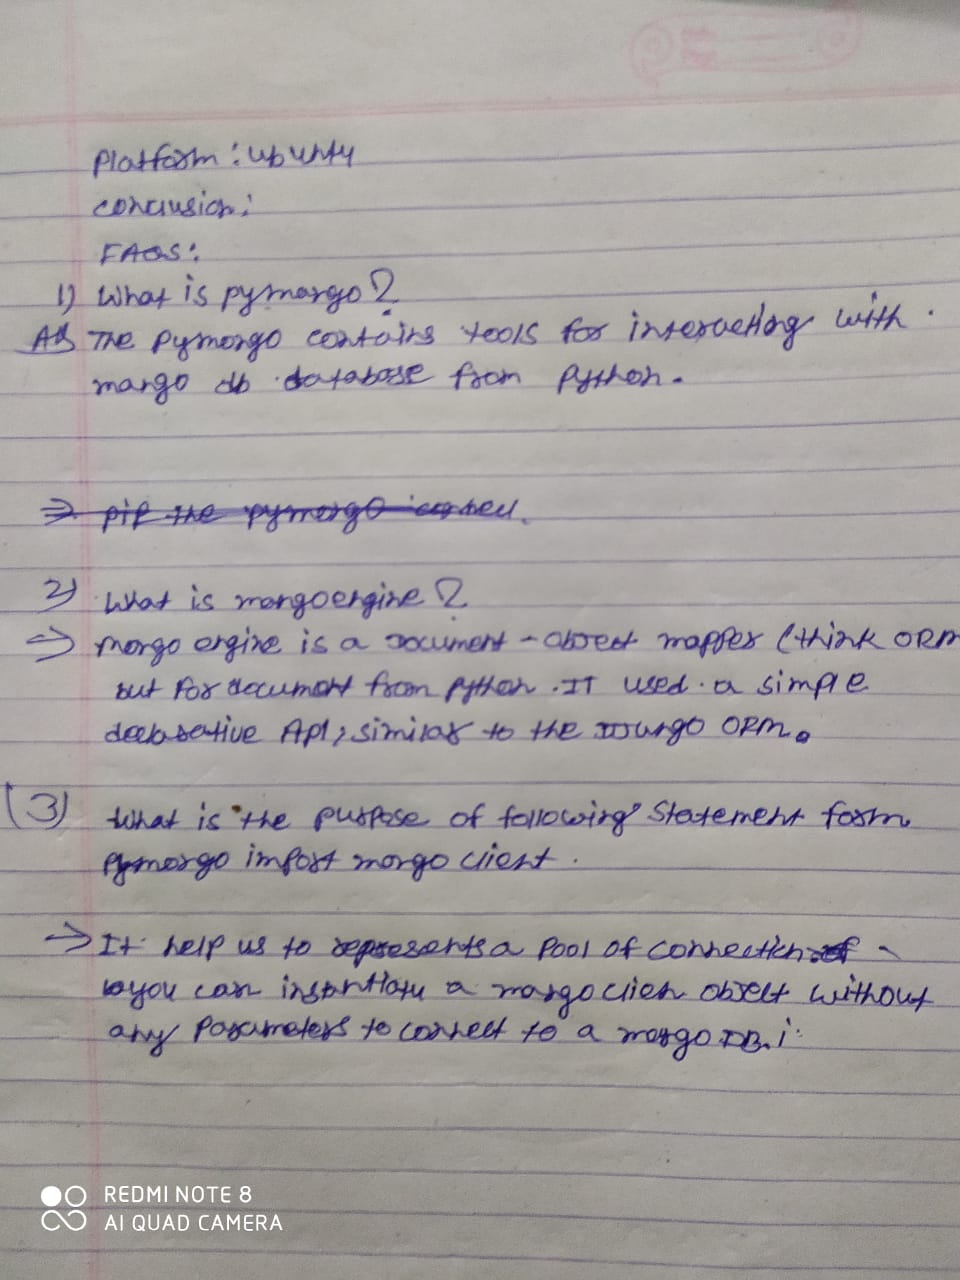 Platform : ubunty
conclusion :
FAQS :
1) What is pymongo ?
Ans The pymongo contains tools for interacting with .
mango db database from python .
⇒ pip the pymongo
2) What is mongoengine ?
⇒ mongo engine is a Document - object mapper ( think ORM
but for document from python . IT used . a simple
declarative API , similar to the ORM .
(3) What is the purpose of following Statement form
Pymongo import mongo client .
→ It help us to represents a pool of connection
you can a mongoclien object without
any Parameters to connect to a mongo DB .
REDMI NOTE 8
AI QUAD CAMERA